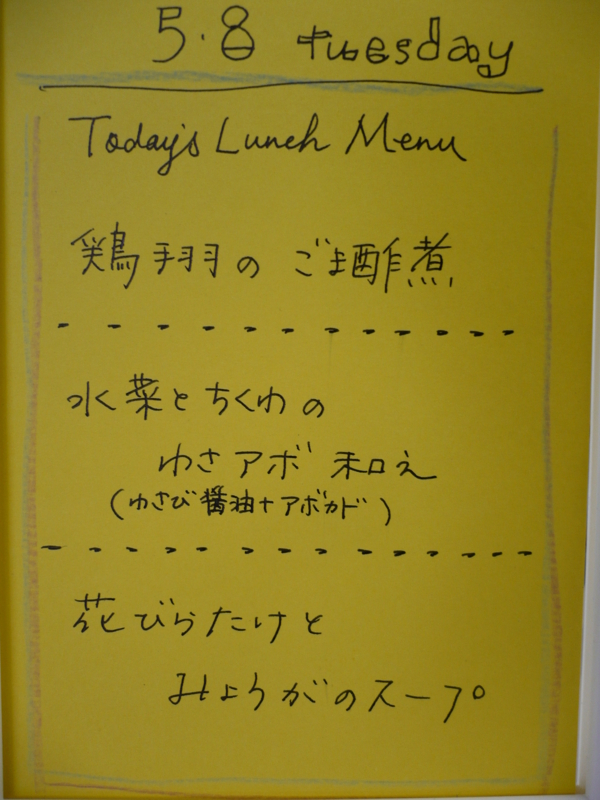 5.8 tuesday
Today's Lunch Menu
鶏手羽の ごま酢煮
水菜とちくわの
わさアボ 和え
(わさび醤油+アボカド)
花びらたけと
みょうがのスープ